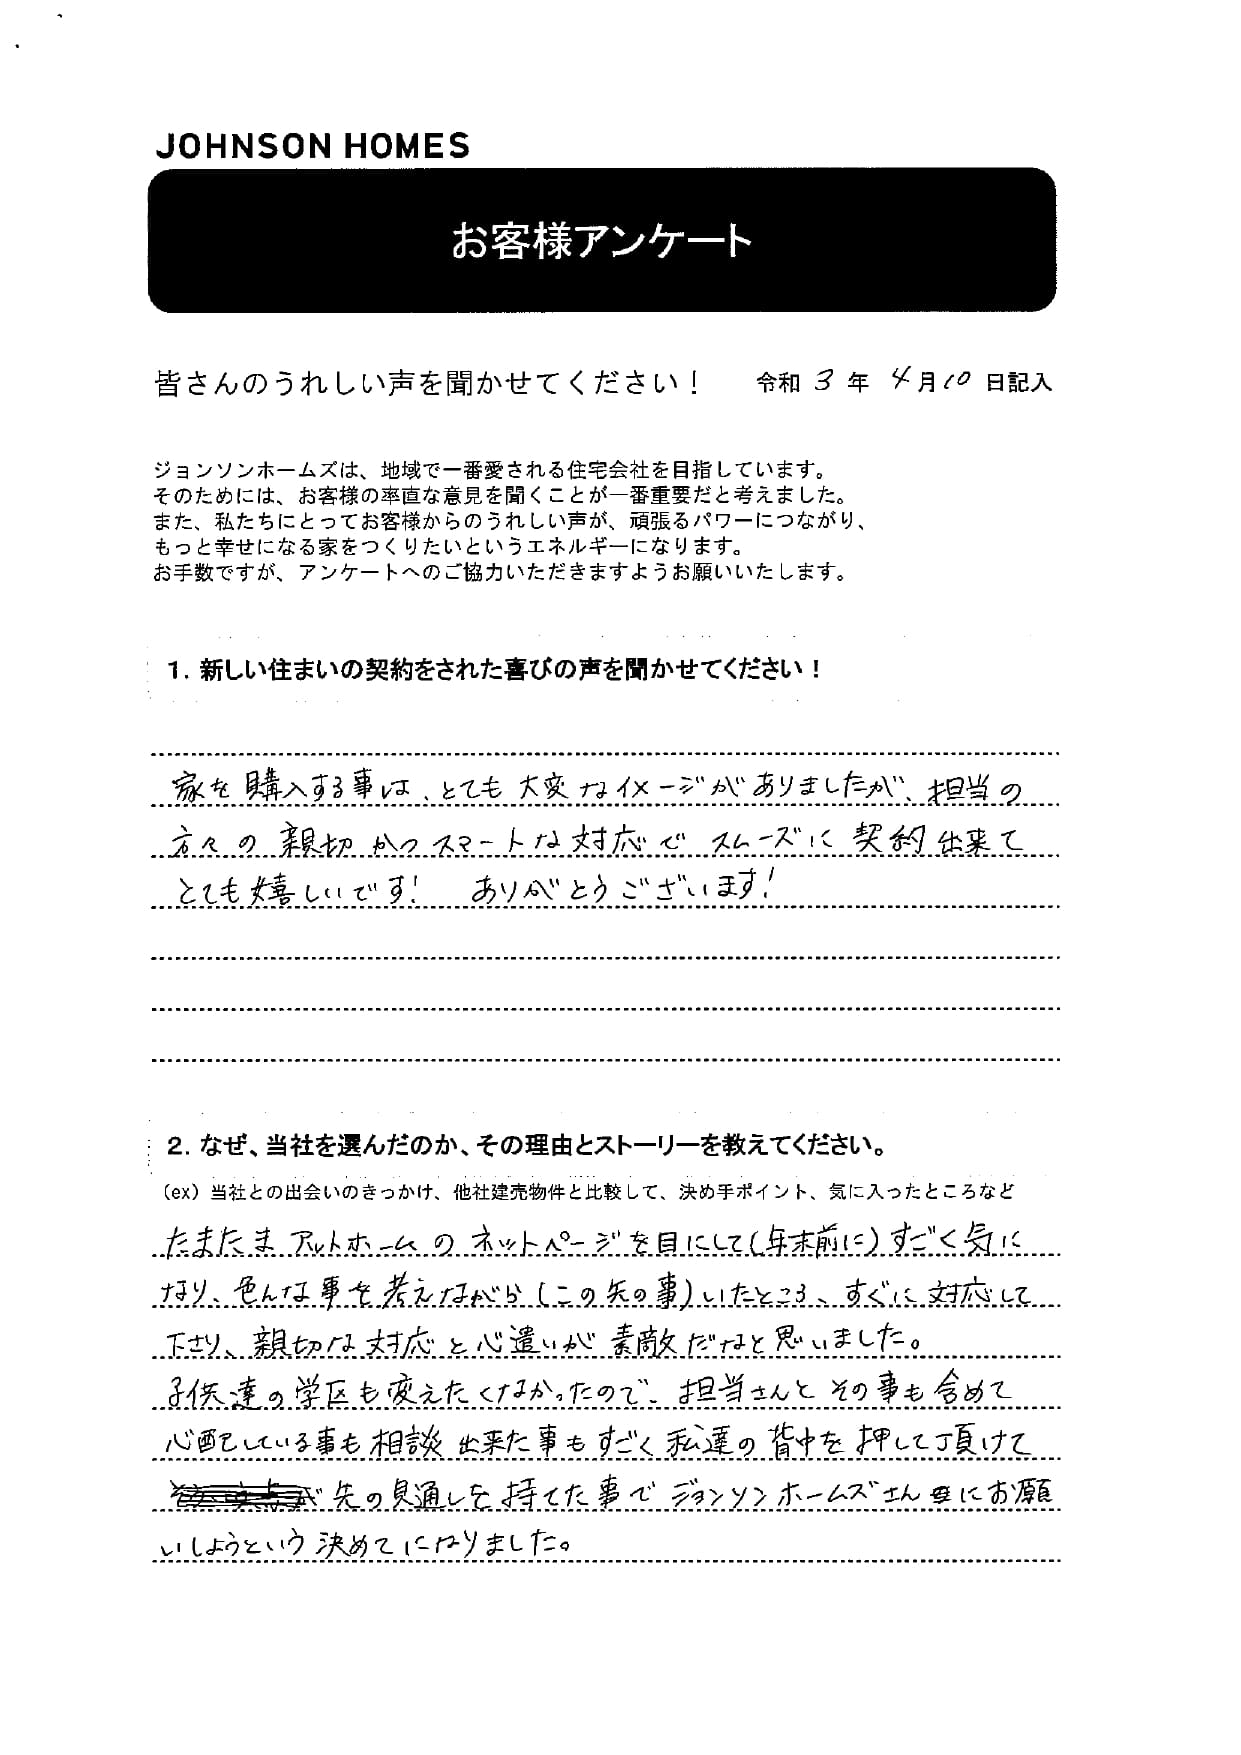 JOHNSON HOMES
お客様アンケート
皆さんのうれしい声を聞かせてください！ 令和 3 年 4月10 日記入
ジョンソンホームズは、地域で一番愛される住宅会社を目指しています。
そのためには、お客様の率直な意見を聞くことが一番重要だと考えました。
また、私たちにとってお客様からのうれしい声が、頑張るパワーにつながり、
もっと幸せになる家をつくりたいというエネルギーになります。
お手数ですが、アンケートへのご協力いただきますようお願いいたします。
1. 新しい住まいの契約をされた喜びの声を聞かせてください！
家を購入する事は、とても大変なイメージがありましたが、担当の
方々の親切かつスマートな対応でスムーズに契約出来て
とても嬉しいです！ ありがとうございます！
2. なぜ、当社を選んだのか、その理由とストーリーを教えてください。
（ex）当社との出会いのきっかけ、他社建売物件と比較して、決め手ポイント、気に入ったところなど
たまたまアットホームのネットページを目にして（年末前に）すごく気に
なり、色んな事を考えながら（この先の事）いたところ、すぐに対応して
下さり、親切な対応と心遣いが素敵だなと思いました。
子供達の学区も変えたくなかったので、担当さんとその事も含めて
心配している事も相談出来た事もすごく私達の背中を押して頂けて
先の見通しを持てた事でジョンソンホームズさんにお願
いしようという決めてになりました。